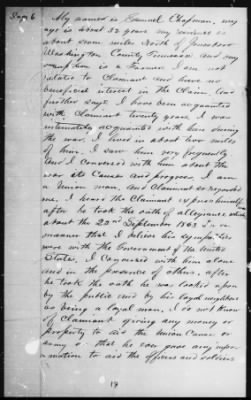 Page 6
My name is Samuel Chapman, my
age is about 52 years my residence is
about seven miles North of Jonesboro
Washington County Tennessee and my
occupation is a Farmer I am not
related to Claimant and have no
beneficial interest in the Claim (and
further says) I have been acquainted
with Claimant twenty years, I was
intimately acquainted with him during
the war, I lived in about two miles
of him, I saw him very frequently
And I Conversed with him about the
war its Causes and progress, I am
a Union man, and Claimant so regarded
me, I heard the Claimant express himself
after he took the oath of allegiance which
about the 22nd September 1863 in a
manner that I believe his sympathies
were with the Government of the United
States, I Conversed with him alone
and in the presence of others, after
he took the oath he was looked upon
by the public and by his loyal neighbors
as being a loyal man, I do not Know
of Claimant giving any money or
property to aid the Union Cause or
army or that he ever gave any infor
mation to aid the officers and soldiers